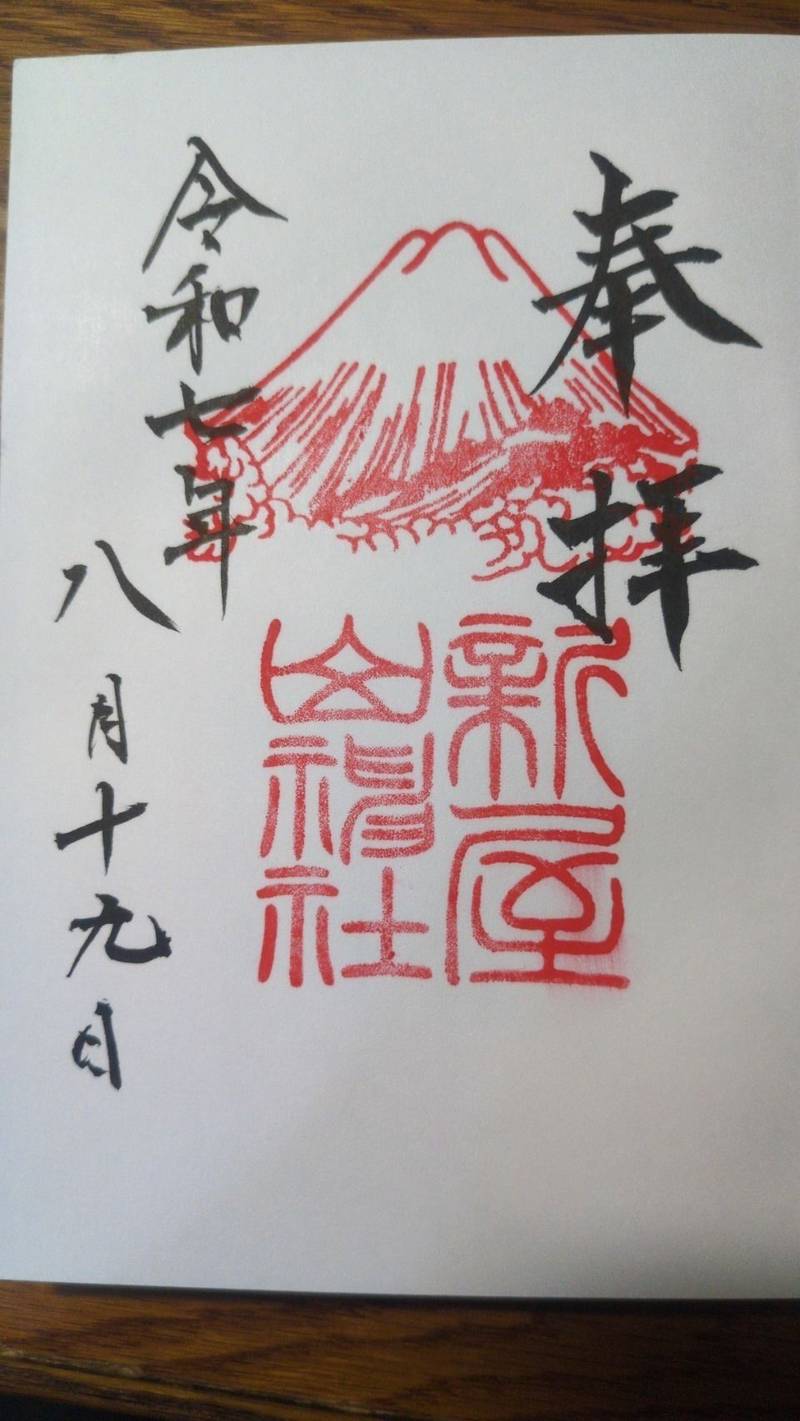 奉拝
新屋
山神社
令和七年
八月十九日